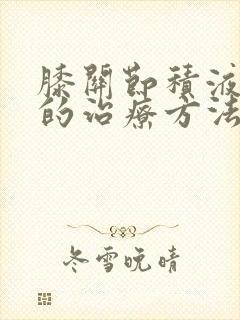 膝關節積液
的治療方法
冬雪晚晴